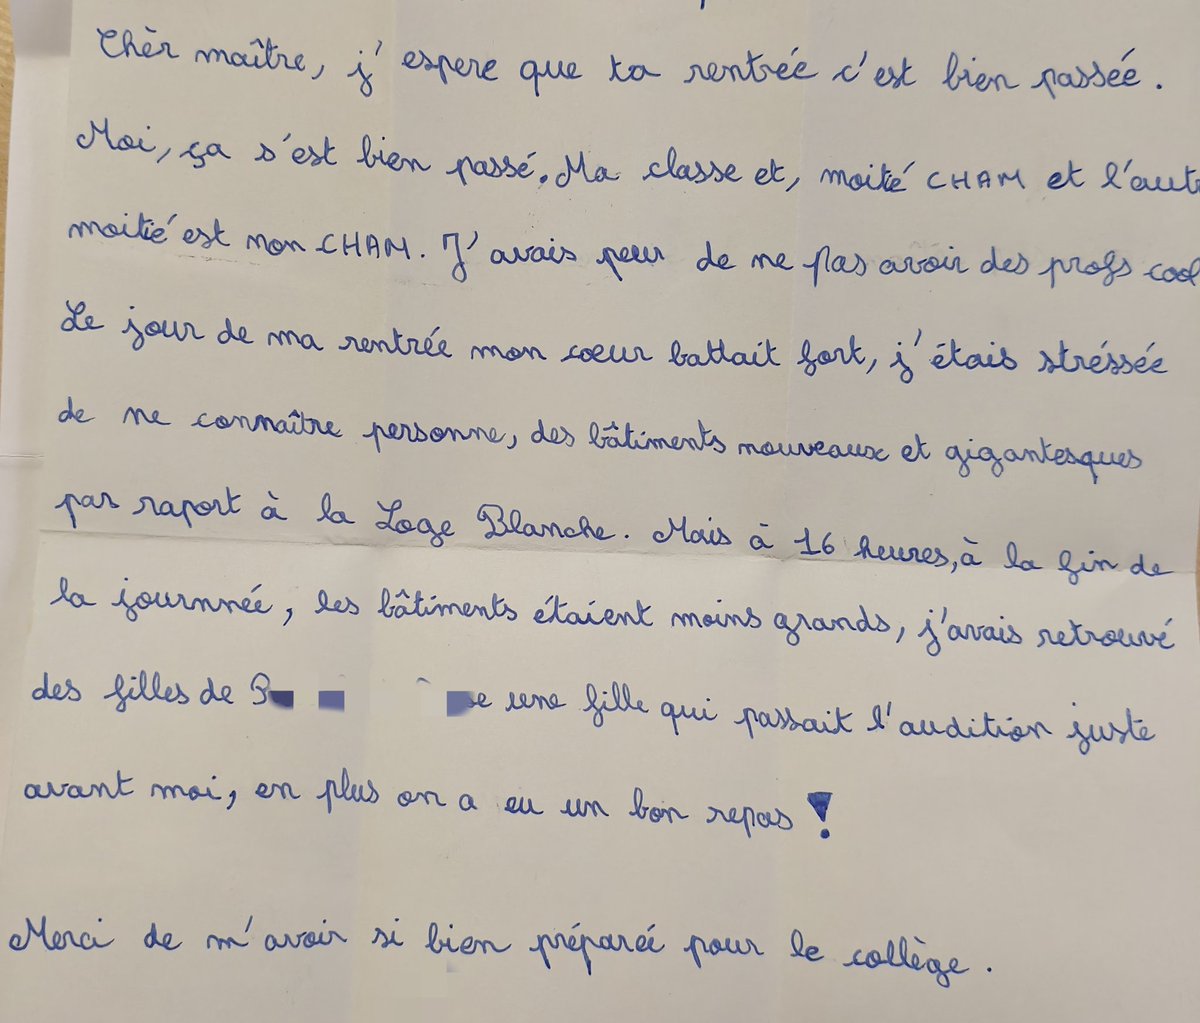 Chèr maître, j'espere que ta rentrée c'est bien passée.
Moi, ça s'est bien passé. Ma classe et, moitié CHAM et l'aut
moitié est non CHAM. J'avais peur de ne pas avoir des profs cool
Le jour de ma rentrée mon coeur battait fort, j'étais stréssée
de ne connaître personne, des bâtiments nouveaux et gigantesques
par raport à la Loge Blanche. Mais à 16 heures, à la fin de
la journnée, les bâtiments étaient moins grands, j'avais retrouvé
des filles de une fille qui passait l'audition juste
avant moi, en plus on a eu un bon repas !
Merci de m'avoir si bien préparée pour le collège.